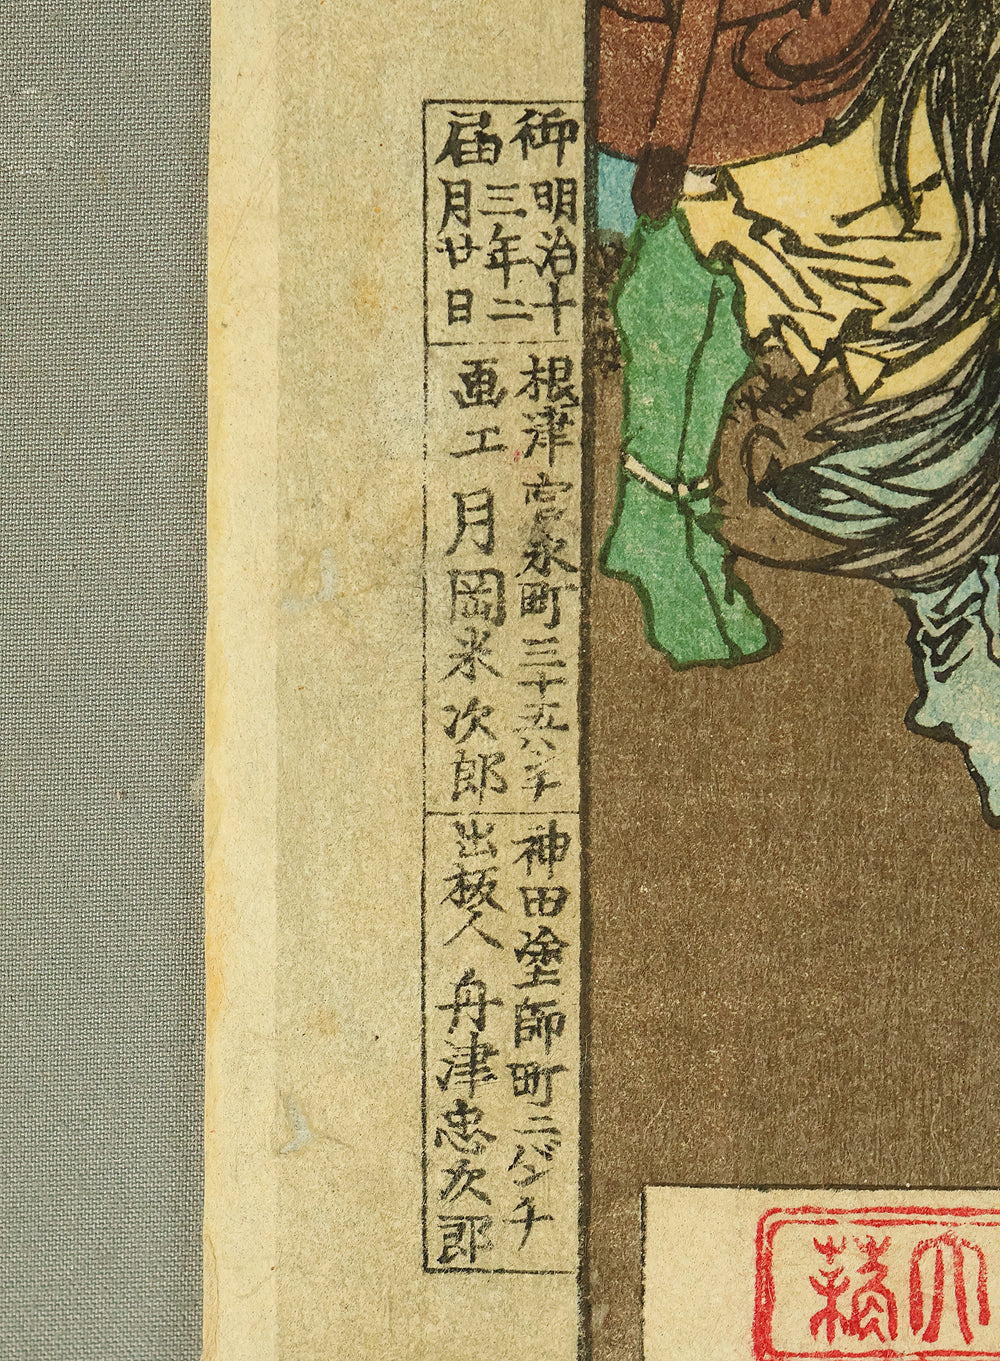 御届
明治十
三年二
月廿日
根津宮永町三十五バンチ
画工 月岡米次郎
神田塗師町二バンチ
出板人 舟津忠次郎
大蘓